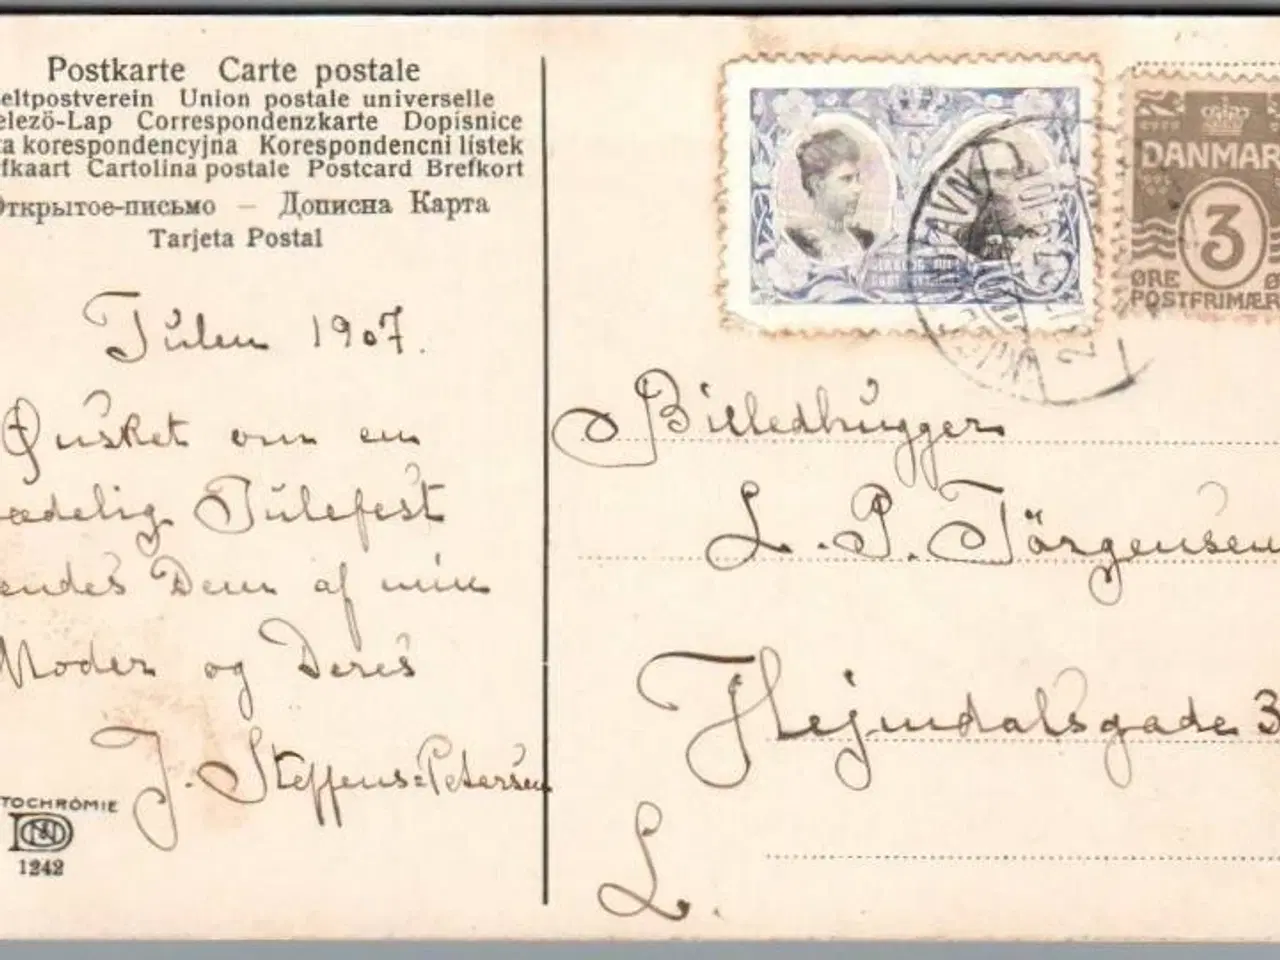 Postkarte Carte postale
eltpostverein Union postale universelle
elezö-Lap Correspondenzkarte Dopisnice
ta korespondencyjna Korespondencni listek
fkaart Cartolina postale Postcard Brefkort
Открытое-письмо — Дописна Карта
Tarjeta Postal
Julen 1907.
Ønsket om en
ædelig Julefest
endes Dem af min
Moder og Deres
J. Steffens=Petersen
TOCHROMIE
1242
DANMAR
3
ØRE Ø
POSTFRIMÆR
Billedhugger
L. P. Jörgensen
Hejmdalsgade 3
L.